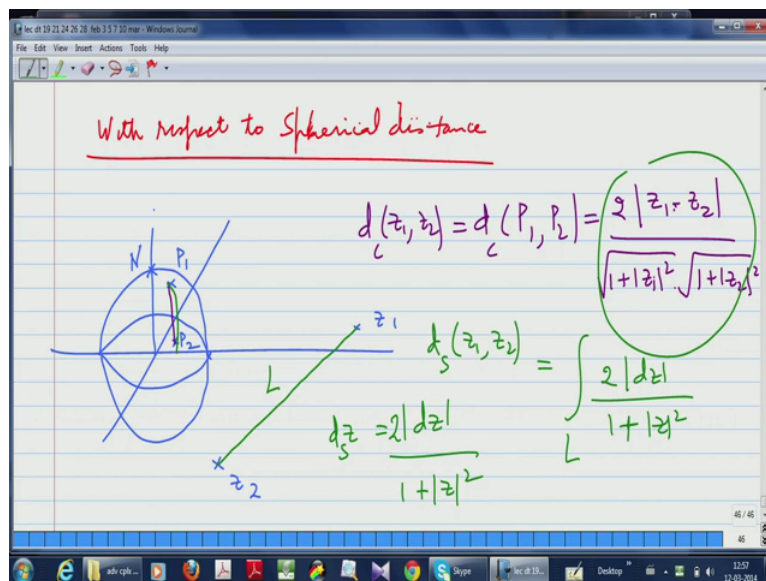 lec dt 19 21 24 26 28 feb 3 5 7 10 mar - Windows Journal
File Edit View Insert Actions Tools Help
With respect to Spherical distance
d_c(z_1, z_2) = d_c(P_1, P_2) = 2|z_1 - z_2| / √(1+|z_1|^2) · √(1+|z_2|^2)
N P_1
P_2
z_1
L
z_2
d_s(z_1, z_2) = ∫_L 2|dz| / 1+|z|^2
d_s z = 2|dz| / 1+|z|^2
46 / 46
46
adv cplx ...
Skype
lec dt 19...
Desktop
12:57
12-03-2014